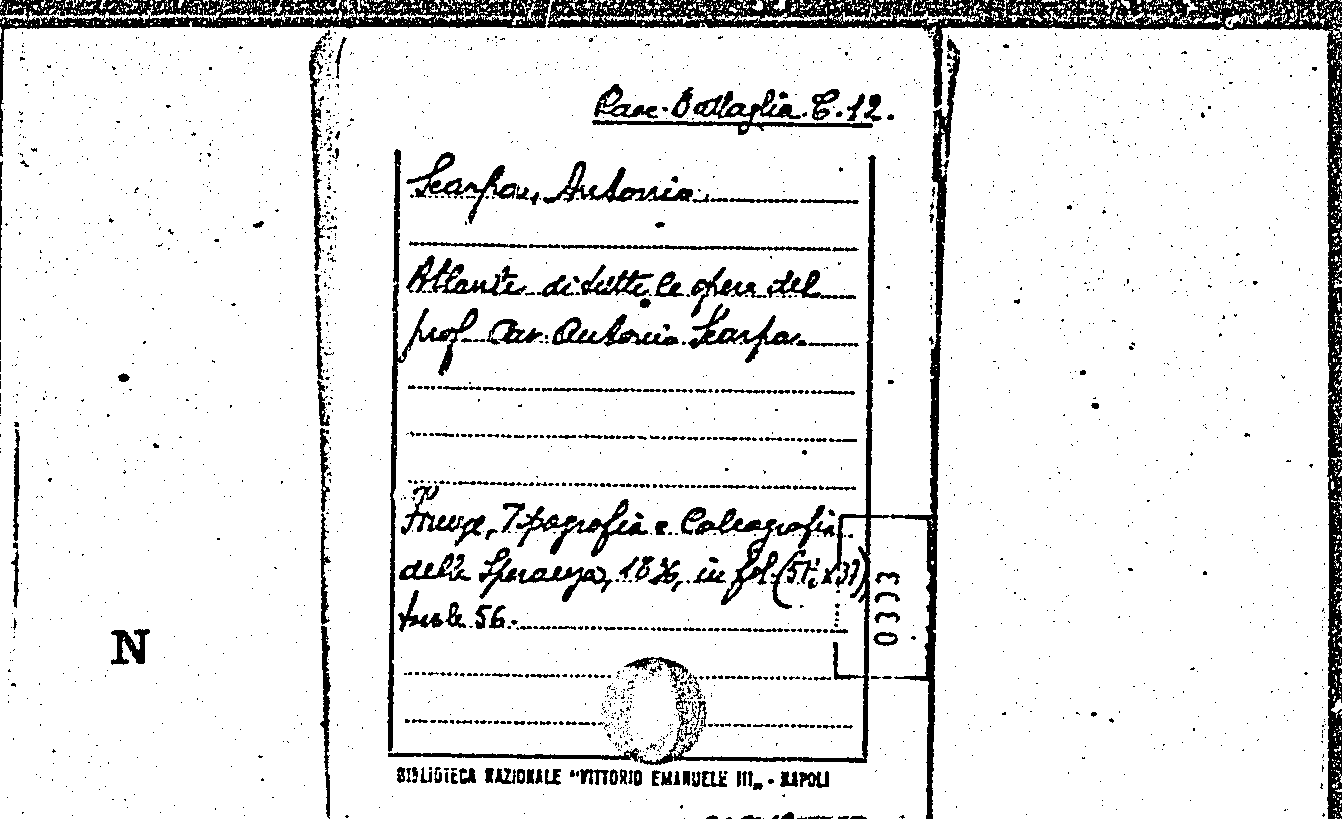 Racc. Battaglia. C. 12.
Scarpa, Antonio.
Atlante di tutte le opere del
prof. Cav. Antonio Scarpa.
Firenze, Tipografia e Calcografia
della Speranza, 1836, in fol.
tavole 56.
0333
N
BIBLIOTECA NAZIONALE "VITTORIO EMANUELE III„ - NAPOLI